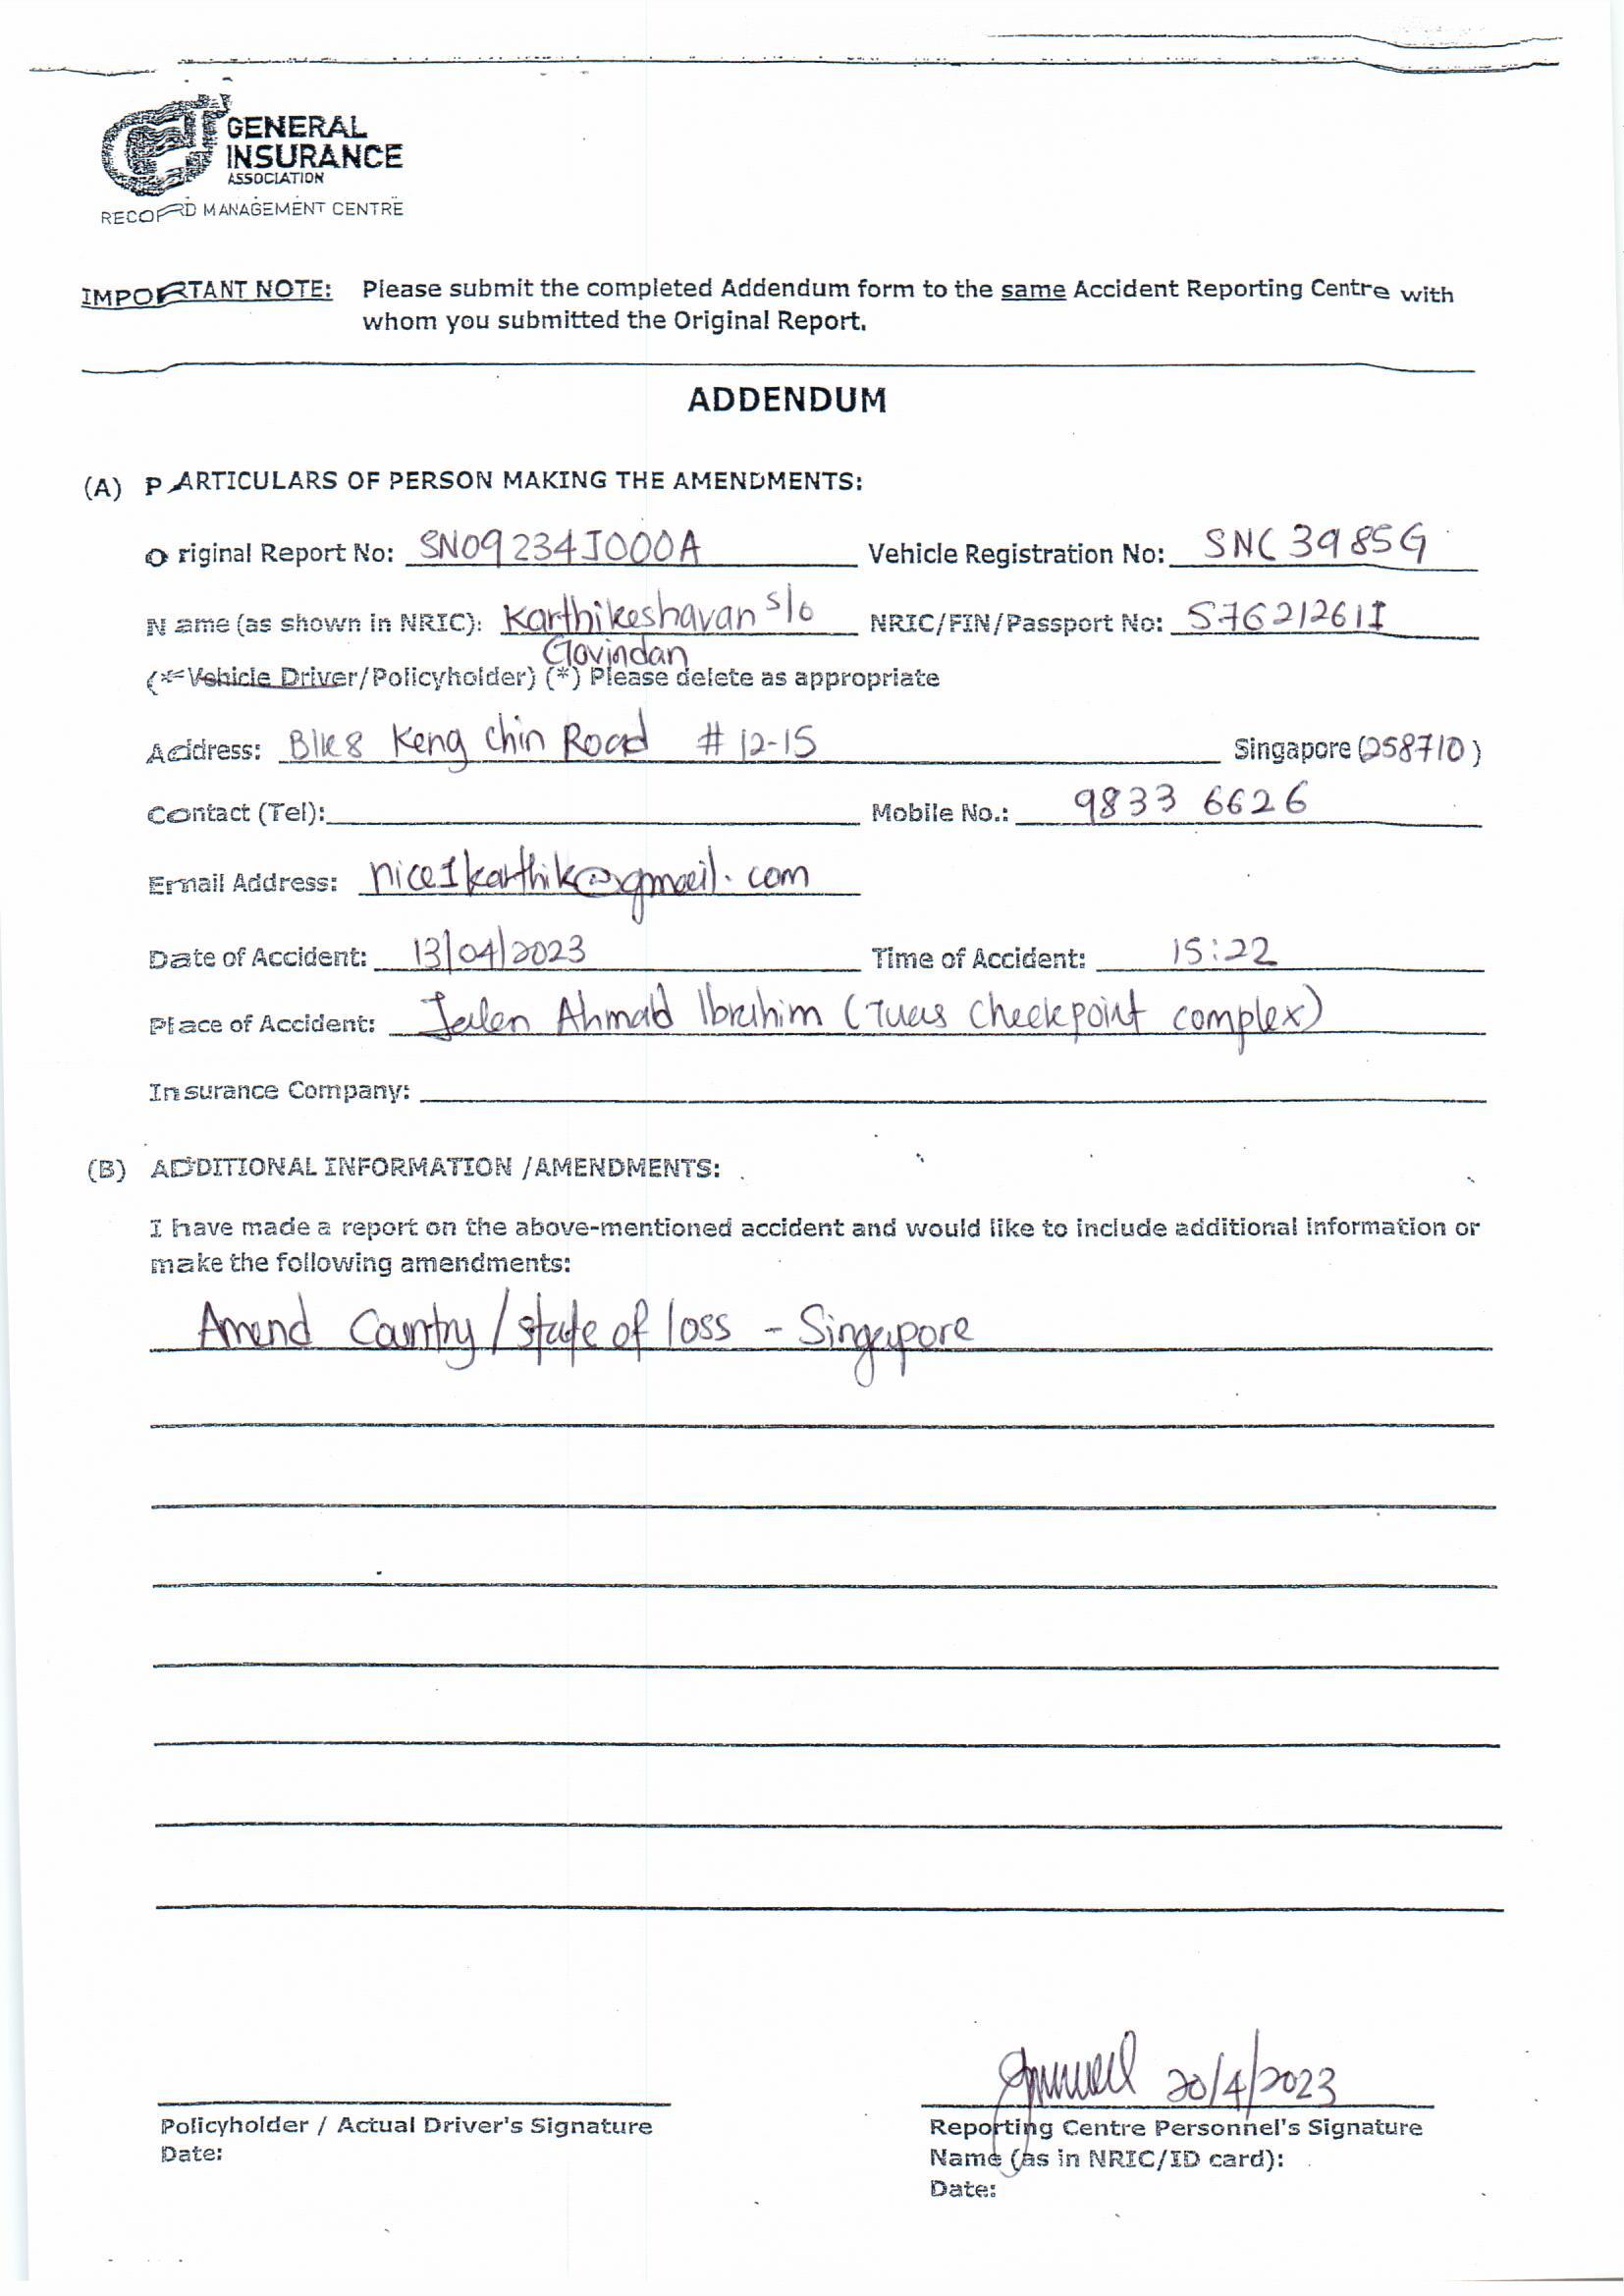 GENERAL
INSURANCE
ASSOCIATION
RECORD MANAGEMENT CENTRE
IMPORTANT NOTE: Please submit the completed Addendum form to the same Accident Reporting Centre with
whom you submitted the Original Report.
ADDENDUM
(A) PARTICULARS OF PERSON MAKING THE AMENDMENTS:
Original Report No: SN09234J000A Vehicle Registration No: SNC3985G
Name (as shown in NRIC): Karthikeshavan s/o NRIC/FIN/Passport No: S7621261I
Govindan
(*Vehicle Driver/Policyholder) (*) Please delete as appropriate
Address: Blk 8 Keng Chin Road #12-15 Singapore (258710)
Contact (Tel): Mobile No.: 9833 6626
Email Address: nice1karthik@gmail.com
Date of Accident: 13/04/2023 Time of Accident: 15:22
Place of Accident: Jalan Ahmad Ibrahim (Tuas Checkpoint complex)
Insurance Company:
(B) ADDITIONAL INFORMATION /AMENDMENTS:
I have made a report on the above-mentioned accident and would like to include additional information or
make the following amendments:
Amend Country/state of loss - Singapore
20/4/2023
Policyholder / Actual Driver's Signature Reporting Centre Personnel's Signature
Date: Name (as in NRIC/ID card):
Date: